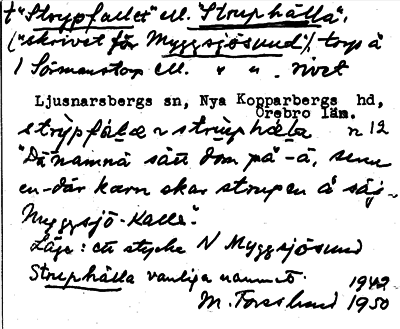 t "Strypfallet" ell. "Struphålla",
("skrivet för Myggsjösund"), torp å
1 Sörmanstorp ell. " " rivet
Ljusnarsbergs sn, Nya Kopparbergs hd,
Örebro län.
n 12
"Dä namnä sätt dom på -å, senn
en-där karn skar strupen å säj
Myggsjö-Kalle".
Läge: ett stycke N Myggsjösund
Struphålla vanliga namnet. 1942
M. Forslund 1950